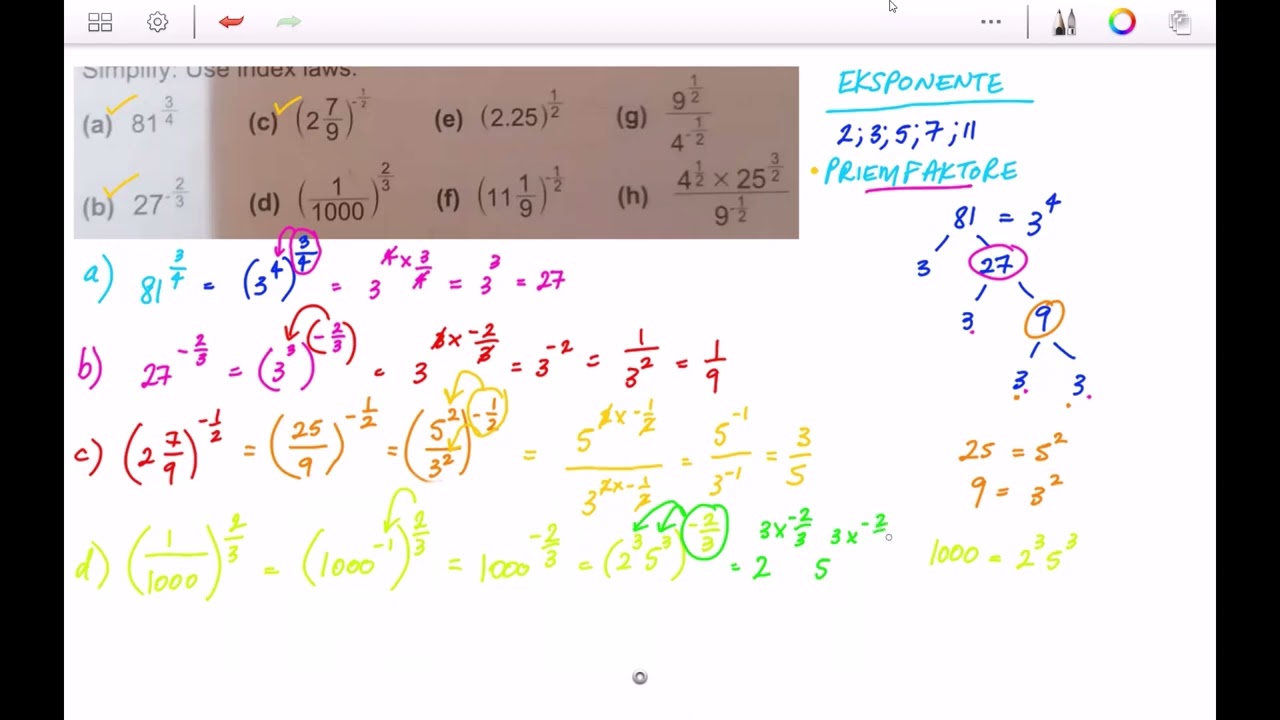 Simplify: Use index laws.
(a) 81^(3/4) (c) (2 7/9)^(-1/2) (e) (2.25)^(1/2) (g) 9^(1/2) / 4^(-1/2)
(b) 27^(-2/3) (d) (1/1000)^(2/3) (f) (11 1/9)^(-1/2) (h) 4^(1/2) × 25^(3/2) / 9^(-1/2)
EKSPONENTE
2; 3; 5; 7; 11
• PRIEMFAKTORE
81 = 3^4
3 27
3 9
3 3
25 = 5^2
9 = 3^2
1000 = 2^3 5^3
a) 81^(3/4) = (3^4)^(3/4) = 3^(4 × 3/4) = 3^3 = 27
b) 27^(-2/3) = (3^3)^(-2/3) = 3^(3 × -2/3) = 3^(-2) = 1/3^2 = 1/9
c) (2 7/9)^(-1/2) = (25/9)^(-1/2) = (5^2/3^2)^(-1/2) = 5^(2 × -1/2) / 3^(2 × -1/2) = 5^(-1)/3^(-1) = 3/5
d) (1/1000)^(2/3) = (1000^(-1))^(2/3) = 1000^(-2/3) = (2^3 5^3)^(-2/3) = 2^(3 × -2/3) 5^(3 × -2